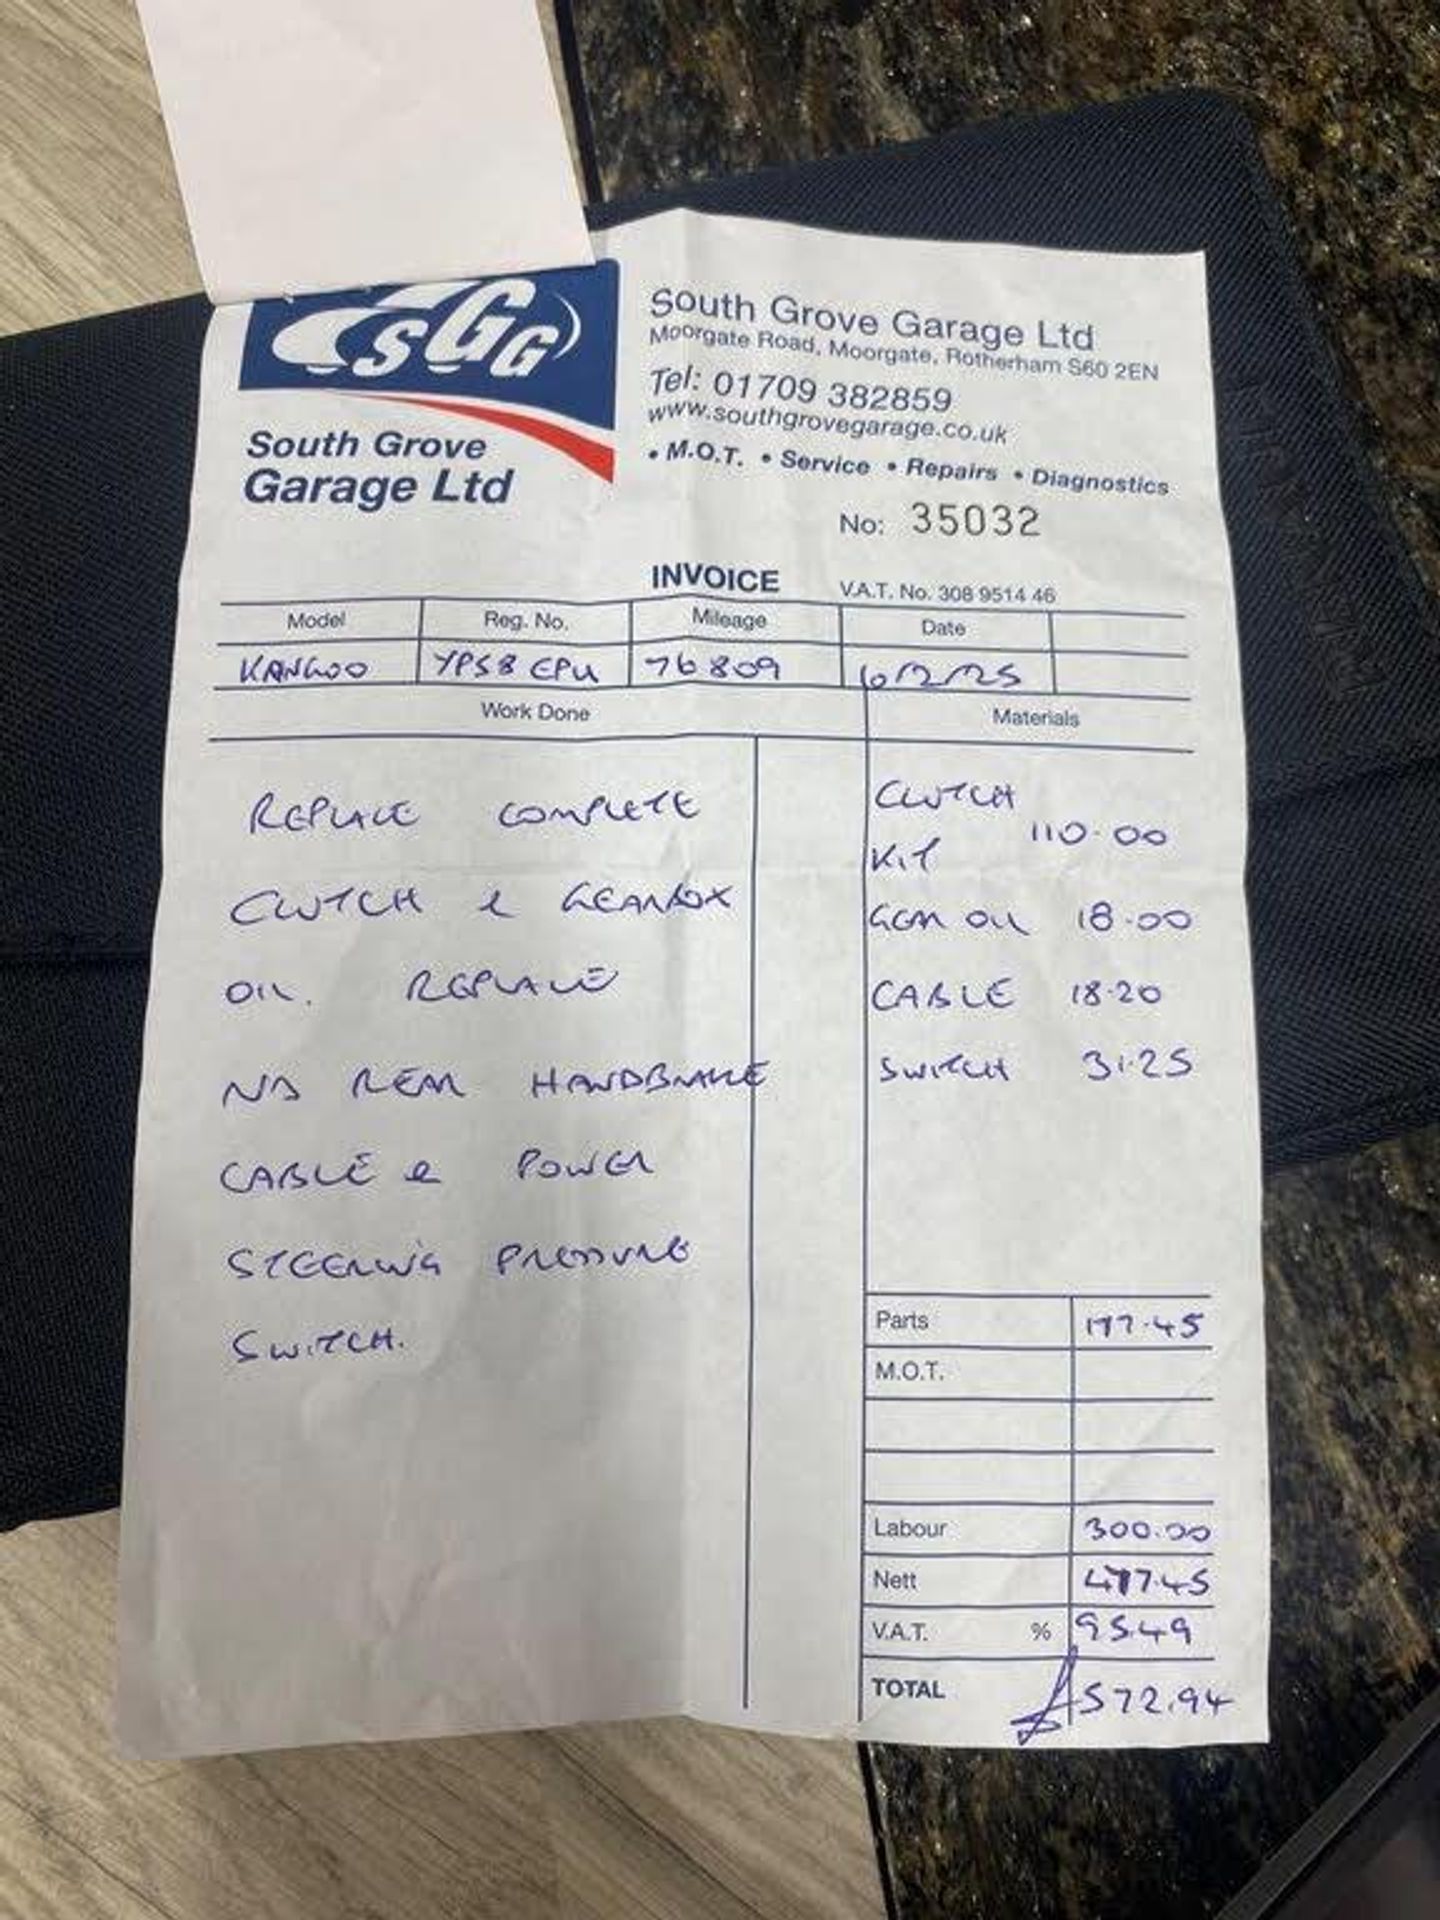 SGG
South Grove
Garage Ltd
South Grove Garage Ltd
Moorgate Road, Moorgate, Rotherham S60 2EN
Tel: 01709 382859
www.southgrovegarage.co.uk
• M.O.T. • Service • Repairs • Diagnostics
No: 35032
INVOICE V.A.T. No. 308 9514 46
Model Reg. No. Mileage Date
KANGOO YP58 EPU 76809 6/2/25
Work Done Materials
REPLACE COMPLETE
CLUTCH & GEARBOX
OIL. REPLACE
N/S REAR HANDBRAKE
CABLE & POWER
STEERING PRESSURE
SWITCH.
CLUTCH
KIT 110.00
GEAR OIL 18.00
CABLE 18.20
SWITCH 31.25
Parts 177.45
M.O.T.
Labour 300.00
Nett 477.45
V.A.T. % 95.49
TOTAL £572.94